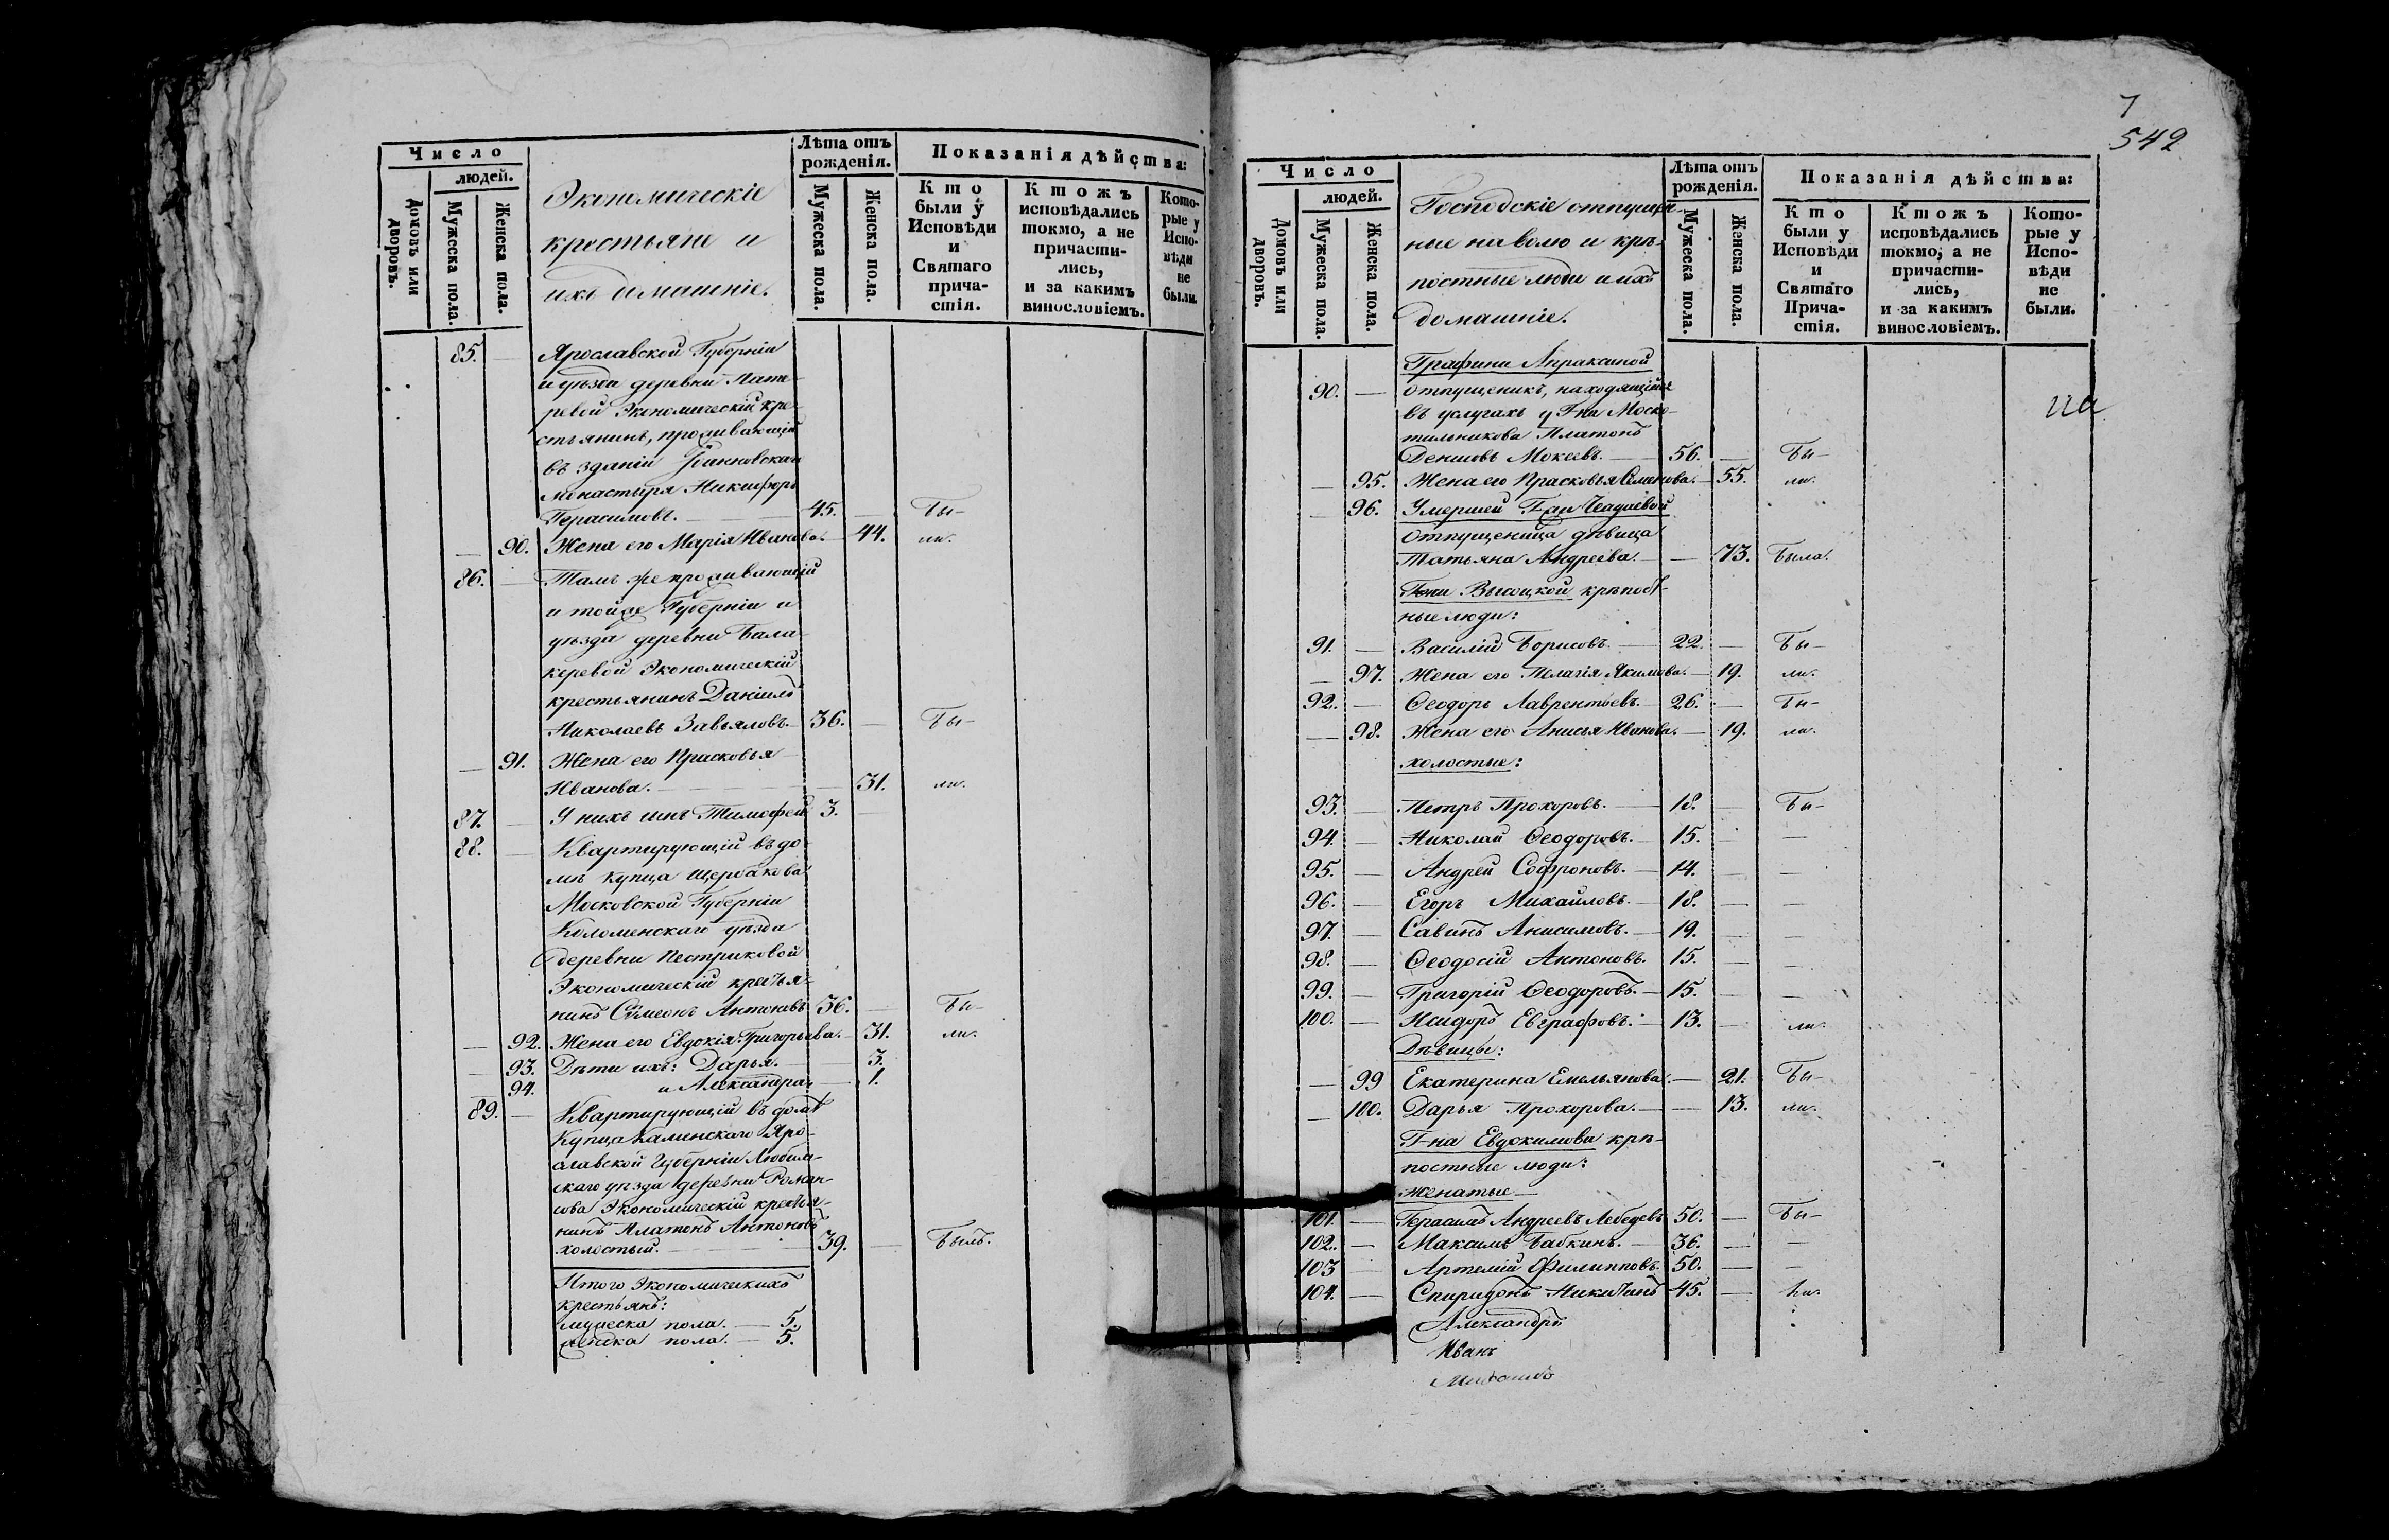 Число
людей.
Домовъ или дворовъ.
Мужеска пола.
Женска пола.
Экономическіе
крестьяне и
ихъ домашніе.
Лѣта отъ
рожденія.
Мужеска пола.
Женска пола.
Показанія дѣйства:
Кто
были у
Исповѣди
и
Святаго
прича-
стія.
Ктожъ
исповѣдались
токмо, а не
причасти-
лись,
и за какимъ
винословіемъ.
Кото-
рые у
Испо-
вѣди
не
были.
85. — Ярославской Губерніи
и уѣзда деревни
ревой Экономическій кре-
стьянинъ, проживающій
въ зданіи
монастыря Никифоръ
Герасимовъ. — 45. — Бы-
— 90. Жена его Марія Иванова. — 44. ли.
86. — Тамъ же проживающій
и тойже Губерніи и
уѣзда деревни Бала-
керевой Экономическій
крестьянинъ Даніилъ
Николаевъ Завьяловъ. — 36. — Бы-
— 91. Жена его Прасковья
Иванова. — 31. ли.
87. — У нихъ сынъ Тимофей 3. —
88. — Квартирующій въ до-
мѣ купца Щербакова
Московской Губерніи
Коломенскаго уѣзда
деревни Пестриковой
Экономическій крестья-
нинъ Симеонъ Антоновъ 36. — Бы-
— 92. Жена его Евдокія Григорьева. — 31. ли.
— 93. Дѣти ихъ: Дарья. — 3.
94. и Александра. — 1.
89. — Квартирующій въ домѣ
Купца Каменскаго Яро-
славской Губерніи Любим-
скаго уѣзда деревни Роман-
сова Экономическій крестья-
нинъ Платонъ Антоновъ
холостый. — 39. — Былъ.
Итого Экономическихъ
крестьянъ:
мужеска пола. — 5.
женска пола. — 5.
7
542
Число
людей.
Домовъ или дворовъ.
Мужеска пола.
Женска пола.
Господскіе отпущен-
ные на волю и крѣ-
постные люди и ихъ
домашніе.
Лѣта отъ
рожденія.
Мужеска пола.
Женска пола.
Показанія дѣйства:
Кто
были у
Исповѣди
и
Святаго
Прича-
стія.
Ктожъ
исповѣдались
токмо, а не
причасти-
лись,
и за какимъ
винословіемъ.
Кото-
рые у
Испо-
вѣди
не
были.
Графини Апраксиной
90. — отпущеникъ, находящійся
въ услугахъ у Г-на Моско-
тильникова Платонъ
Денисовъ Мокеевъ. — 56. — Бы-
— 95. Жена его Прасковья Семенова. — 55. ли.
— 96. Умершей Г-жи
отпущеница дѣвица
Татьяна Андреева. — — 73. Была.
Г-жи Высоцкой крѣпост-
ные люди:
91. — Василій Борисовъ. — 22. — Бы-
— 97. Жена его Пелагія Якимова. — 19. ли.
92. — Ѳеодоръ Лаврентьевъ. — 26. — Бы-
— 98. Жена его Анисья Иванова. — 19. ли.
холостые:
93. — Петръ Прохоровъ. — 18. — Бы-
94. — Николай Ѳеодоровъ. — 15. — —
95. — Андрей Софроновъ. — 14. — —
96. — Егоръ Михайловъ. — 18. — —
97. — Савинъ Анисимовъ. — 19. — —
98. — Ѳеодосій Антоновъ. 15. — —
99. — Григорій Ѳеодоровъ. — 15. — —
100. — Исидоръ Евграфовъ. — 13. — ли.
Дѣвицы:
— 99 Екатерина Емельянова. — 21. Бы-
— 100. Дарья Прохорова. — — 13. ли.
Г-на Евдокимова крѣ-
постные люди:
женатые —
101. — Герасимъ Андреевъ Лебедевъ 50. — Бы-
102. — Максимъ Бабкинъ. — 36. — —
103 — Артемій Филипповъ. 50. — —
104. — Спиридонъ Никитинъ 45. — ли.
Александръ
Иванъ